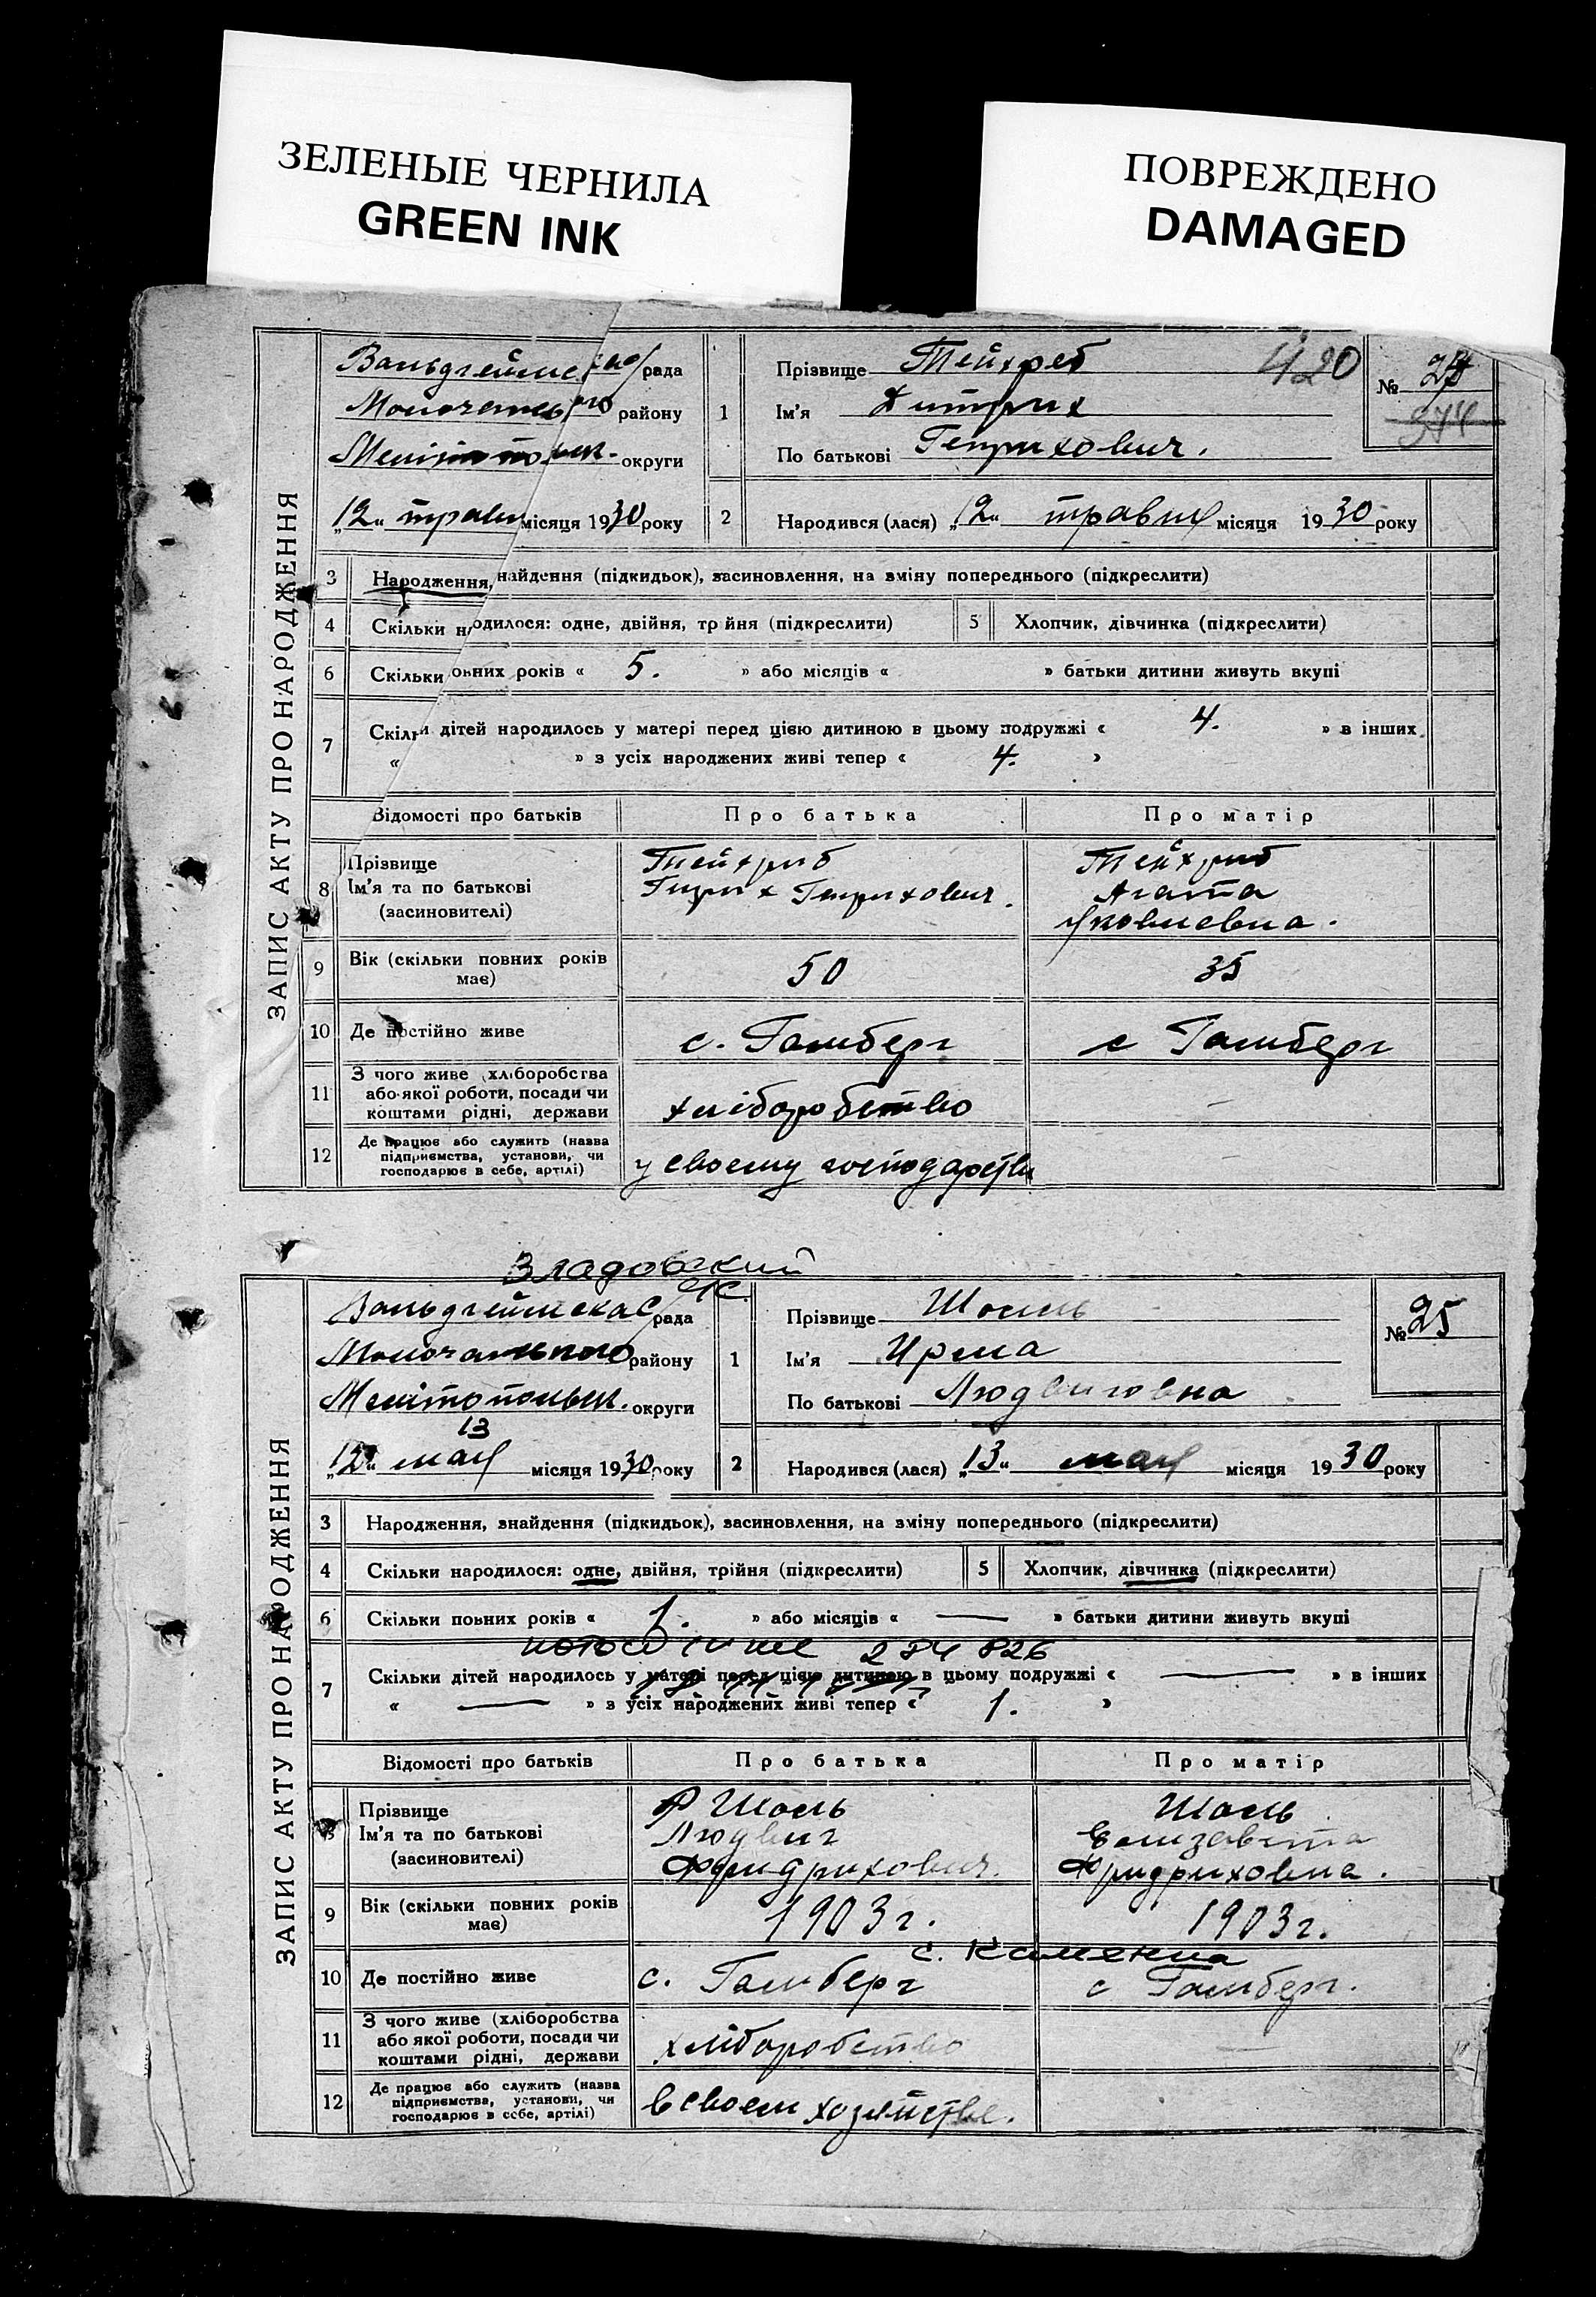 ЗЕЛЕНЫЕ ЧЕРНИЛА
GREEN INK
ПОВРЕЖДЕНО
DAMAGED
ЗАПИС АКТУ ПРО НАРОДЖЕННЯ
рада
району
округи
„12“ травн місяця 1930 року
1
Прізвище Тейхреб
Ім’я Дитрих
По батькові Генрихович.
420
№ 24
374
2
Народився (лася) „12“ травня місяця 1930 року
3 Народження, найдення (підкидьок), засиновлення, на зміну попереднього (підкреслити)
4 Скільки н одилося: одне, двійня, тр йня (підкреслити) 5 Хлопчик, дівчинка (підкреслити)
6 Скільки овних років « 5. » або місяців « » батьки дитини живуть вкупі
7 Скільки дітей народилось у матері перед цією дитиною в цьому подружжі « 4. » в інших
« » з усіх народжених живі тепер « 4. »
Відомості про батьків Про батька Про матір
8 Прізвище
Ім’я та по батькові
(засновителі)
Тейхриб
Генрих Генрихович.
Тейхриб
Агата
Яковлевна.
9 Вік (скільки повних років
має) 50 35
10 Де постійно живе с. Гамберг с Гамберг
11 З чого живе (хліборобства
або якої роботи, посади чи
коштами рідні, держави
хліборобство —
12 Де працює або служить (назва
підприємства, установи, чи
господарює в себе, артілі)
у своему господарстві —
Владовский
с/с.
ЗАПИС АКТУ ПРО НАРОДЖЕННЯ
Вальдгеймска с/рада
району
Мелітопольск. округи
13
„12“ мая місяця 1930 року
1
Прізвище Шолль
Ім’я Ирма
По батькові Людвиговна
№ 25
2
Народився (лася) „13“ мая місяця 1930 року
3 Народження, знайдення (підкидьок), засиновлення, на зміну попереднього (підкреслити)
4 Скільки народилося: одне, двійня, трійня (підкреслити) 5 Хлопчик, дівчинка (підкреслити)
6 Скільки повних років « 1. » або місяців « — » батьки дитини живуть вкупі
284 826
7 Скільки дітей народилось у матері перед цією дитиною в цьому подружжі « — » в інших
« — » з усіх народжених живі тепер « 1. »
Відомості про батьків Про батька Про матір
8 Прізвище
Ім’я та по батькові
(засиновителі)
Шолль
Людвиг
Фридрихович.
Шолль
Елизавета
Фридриховна.
9 Вік (скільки повних років
має) 1903 г. 1903 г.
с. Каменка
10 Де постійно живе с. Гамберг с Гамберг.
11 З чого живе (хліборобства
або якої роботи, посади чи
коштами рідні, держави
хліборобство —
12 Де працює або служить (назва
підприємства, установи, чи
господарює в себе, артілі)
в своем хозяйстве.